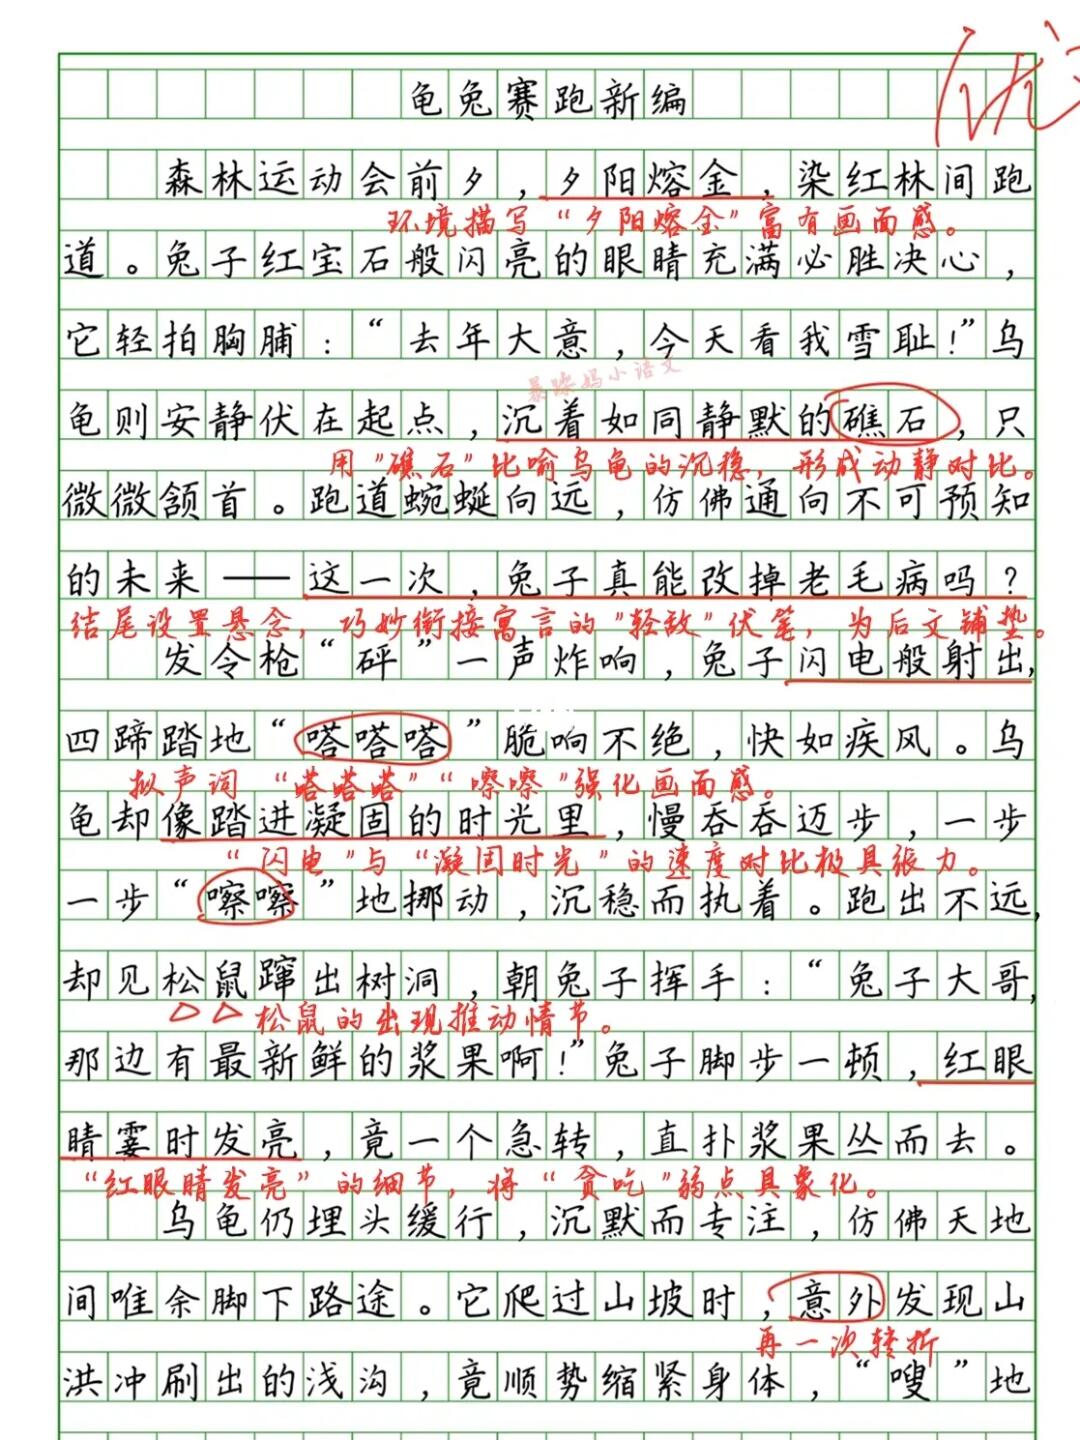 优
龟兔赛跑新编
森林运动会前夕，夕阳熔金，染红林间跑
环境描写“夕阳熔金”富有画面感。
道。兔子红宝石般闪亮的眼睛充满必胜决心，
它轻拍胸脯：“去年大意，今天看我雪耻！”乌
暴躁妈小语文
龟则安静伏在起点，沉着如同静默的礁石，只
用“礁石”比喻乌龟的沉稳，形成动静对比。
微微颔首。跑道蜿蜒向远，仿佛通向不可预知
的未来——这一次，兔子真能改掉老毛病吗？
结尾设置悬念，巧妙衔接寓言的“轻敌”伏笔，为后文铺垫。
发令枪“砰”一声炸响，兔子闪电般射出，
四蹄踏地“嗒嗒嗒”脆响不绝，快如疾风。乌
拟声词“嗒嗒嗒”“嚓嚓”强化画面感。
龟却像踏进凝固的时光里，慢吞吞迈步，一步
“闪电”与“凝固时光”的速度对比极具张力。
一步“嚓嚓”地挪动，沉稳而执着。跑出不远，
却见松鼠蹿出树洞，朝兔子挥手：“兔子大哥，
松鼠的出现推动情节。
那边有最新鲜的浆果啊！”兔子脚步一顿，红眼
睛霎时发亮，竟一个急转，直扑浆果丛而去。
“红眼睛发亮”的细节，将“贪吃”弱点具象化。
乌龟仍埋头缓行，沉默而专注，仿佛天地
间唯余脚下路途。它爬过山坡时，意外发现山
再一次转折
洪冲刷出的浅沟，竟顺势缩紧身体，“嗖”地